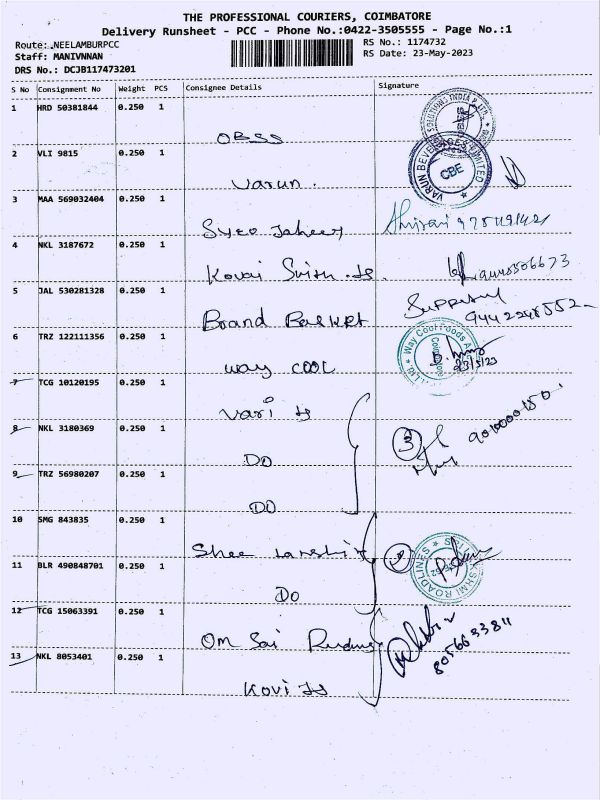 THE PROFESSIONAL COURIERS, COIMBATORE
Delivery Runsheet - PCC - Phone No.:0422-3505555 - Page No.:1
Route: .NEELAMBURPCC RS No.: 1174732
Staff: MANIVNNAN RS Date: 23-May-2023
DRS No.: DCJB117473201
S No Consignment No Weight PCS Consignee Details Signature
1 HRD 50381844 0.250 1
OBSS
2 VLI 9815 0.250 1
Varun.
VARUN BEVERAGES LIMITED
CBE
3 MAA 569032404 0.250 1
4 NKL 3187672 0.250 1
Kovai
5 JAL 530281328 0.250 1
Brand Basket
6 TRZ 122111356 0.250 1
way cool
Way Cool Foods
23/5/23
7 TCG 10120195 0.250 1
8 NKL 3180369 0.250 1
DO
3
9 TRZ 56980207 0.250 1
DO
10 SMG 843835 0.250 1
Shee
11 BLR 490848701 0.250 1
Do
ROADLINES
12 TCG 15063391 0.250 1
Om Sai
13 NKL 8053401 0.250 1
Kovi